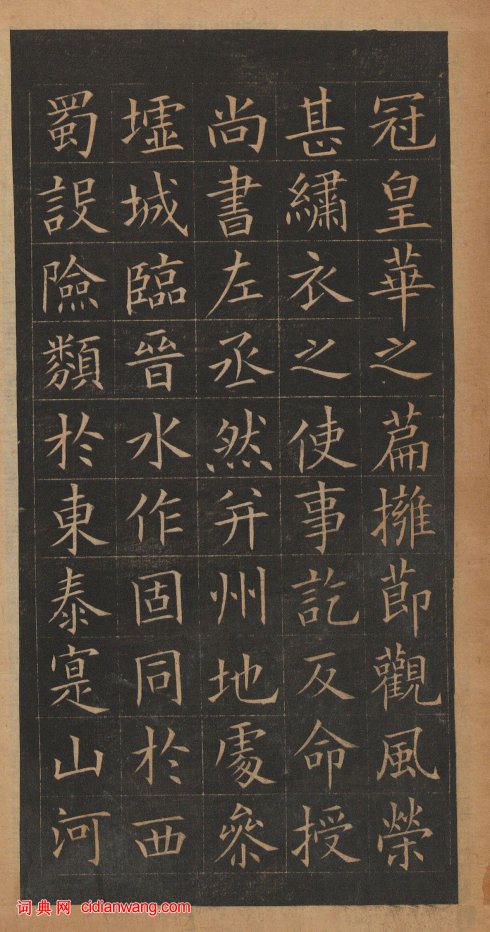 冠皇華之篇擁節觀風榮
甚繡衣之使事訖反命授
尚書左丞然并州地處參
墟城臨晉水作固同於西
蜀設險類於東泰寔山河
词典网 cidianwang.com